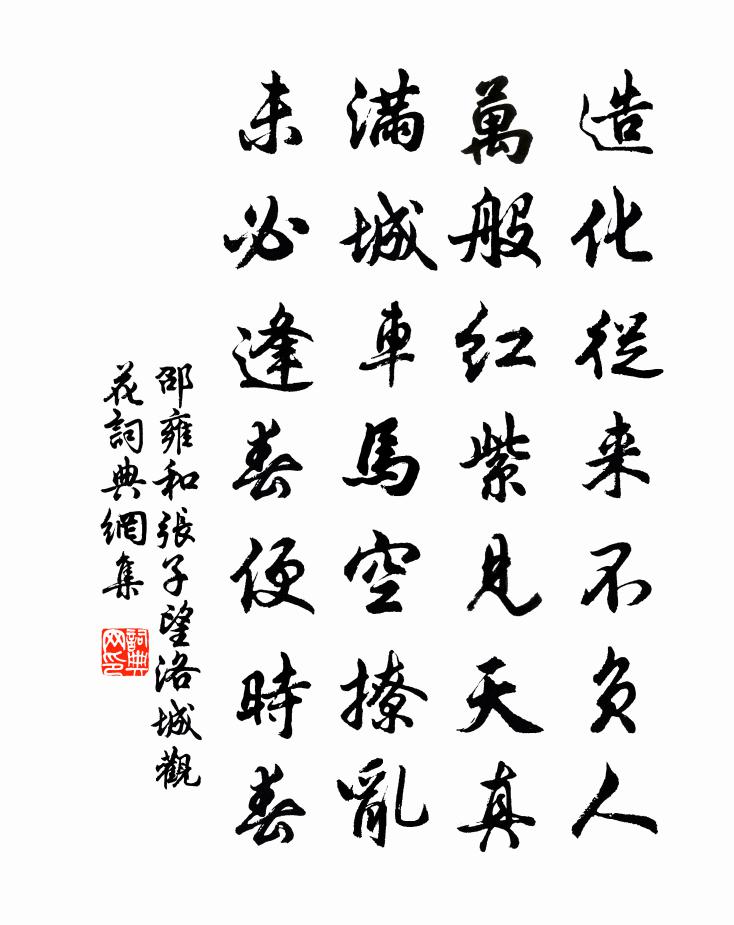 造化從来不負人
萬般紅紫見天真
滿城車馬空撩亂
未必逢春便時春
邵雍和張子望洛城觀
花詞典網集
詞典网印